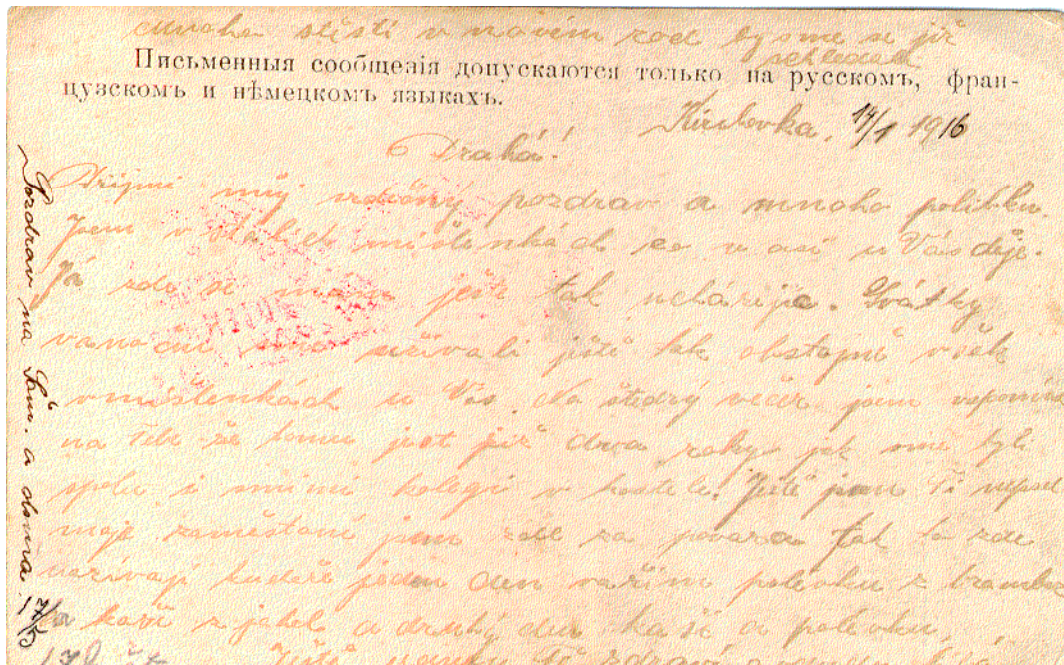 mnoho štěstí v novém roce bysme se již
shledali
Письменныя сообщенія допускаются только на русскомъ, фран-
цузскомъ и нѣмецкомъ языкахъ.
14/1 1916
Drahá!
Přijmi můj vděčný pozdrav a mnoho políbků.
Jsem v stálích mišlenkách co v asi u Vás děje.
Já zde se jest tak nehází. Svátky
vanoční sme užívali ještě tak obstojně však
v mišlenkách u Vás. Na štědrý večer jsem vspomínal
na tebe že tomu jest již dva roky jak sme byli
spolu i smími kolegi v kostele. Ještě jsem Ti nepsal
moje zaměstnání jsem zde za povara tak to zde
nazívají kuchaře jeden den vařím polevku z brambor
a kaši z jahel a druhý den kaši a polevku,
Ještě zdraví a
Pozdrav na a doma